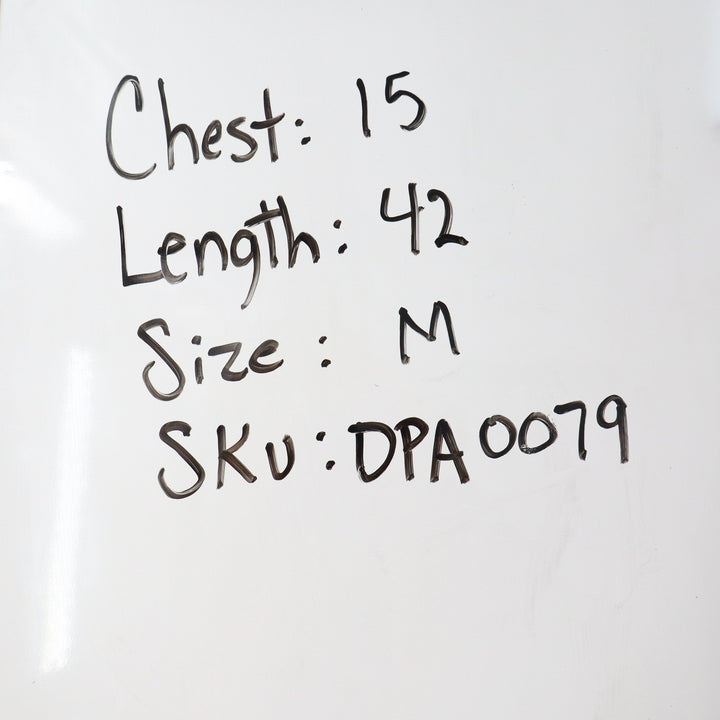 Chest: 15
Length: 42
Size: M
SKU: DPA0079